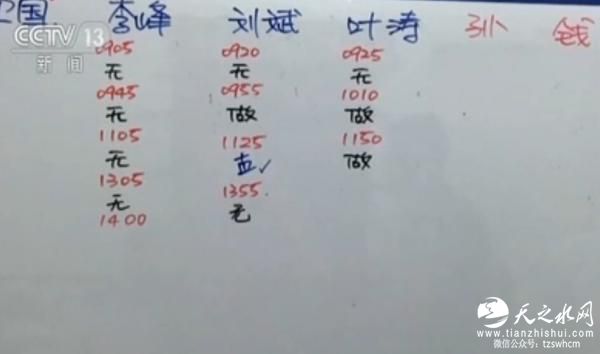 卫国 李峰 刘斌 叶涛 孙 钱
CCTV 13
新闻
0905 0920 0925
无 无 无
0945 0955 1010
无 做 做
1105 1125 1150
无 查✓ 做
1305 1355
无 无
1400
天之水网
www.tianzhishui.com
微信公众号:tzswhcm